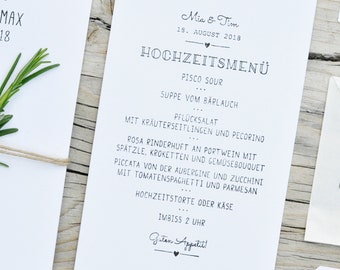 MAX
18
Mia & Tim
18. AUGUST 2018
HOCHZEITSMENÜ
PISCO SOUR
...
SUPPE VOM BÄRLAUCH
...
PFLÜCKSALAT
MIT KRÄUTERSEITLINGEN UND PECORINO
...
ROSA RINDERHUFT AN PORTWEIN MIT
SPÄTZLE, KROKETTEN UND GEMÜSEBOUQUET
...
PICCATA VON DER AUBERGINE UND ZUCCHINI
MIT TOMATENSPAGHETTI UND PARMESAN
...
HOCHZEITSTORTE ODER KÄSE
...
IMBISS 2 UHR
Guten Appetit!